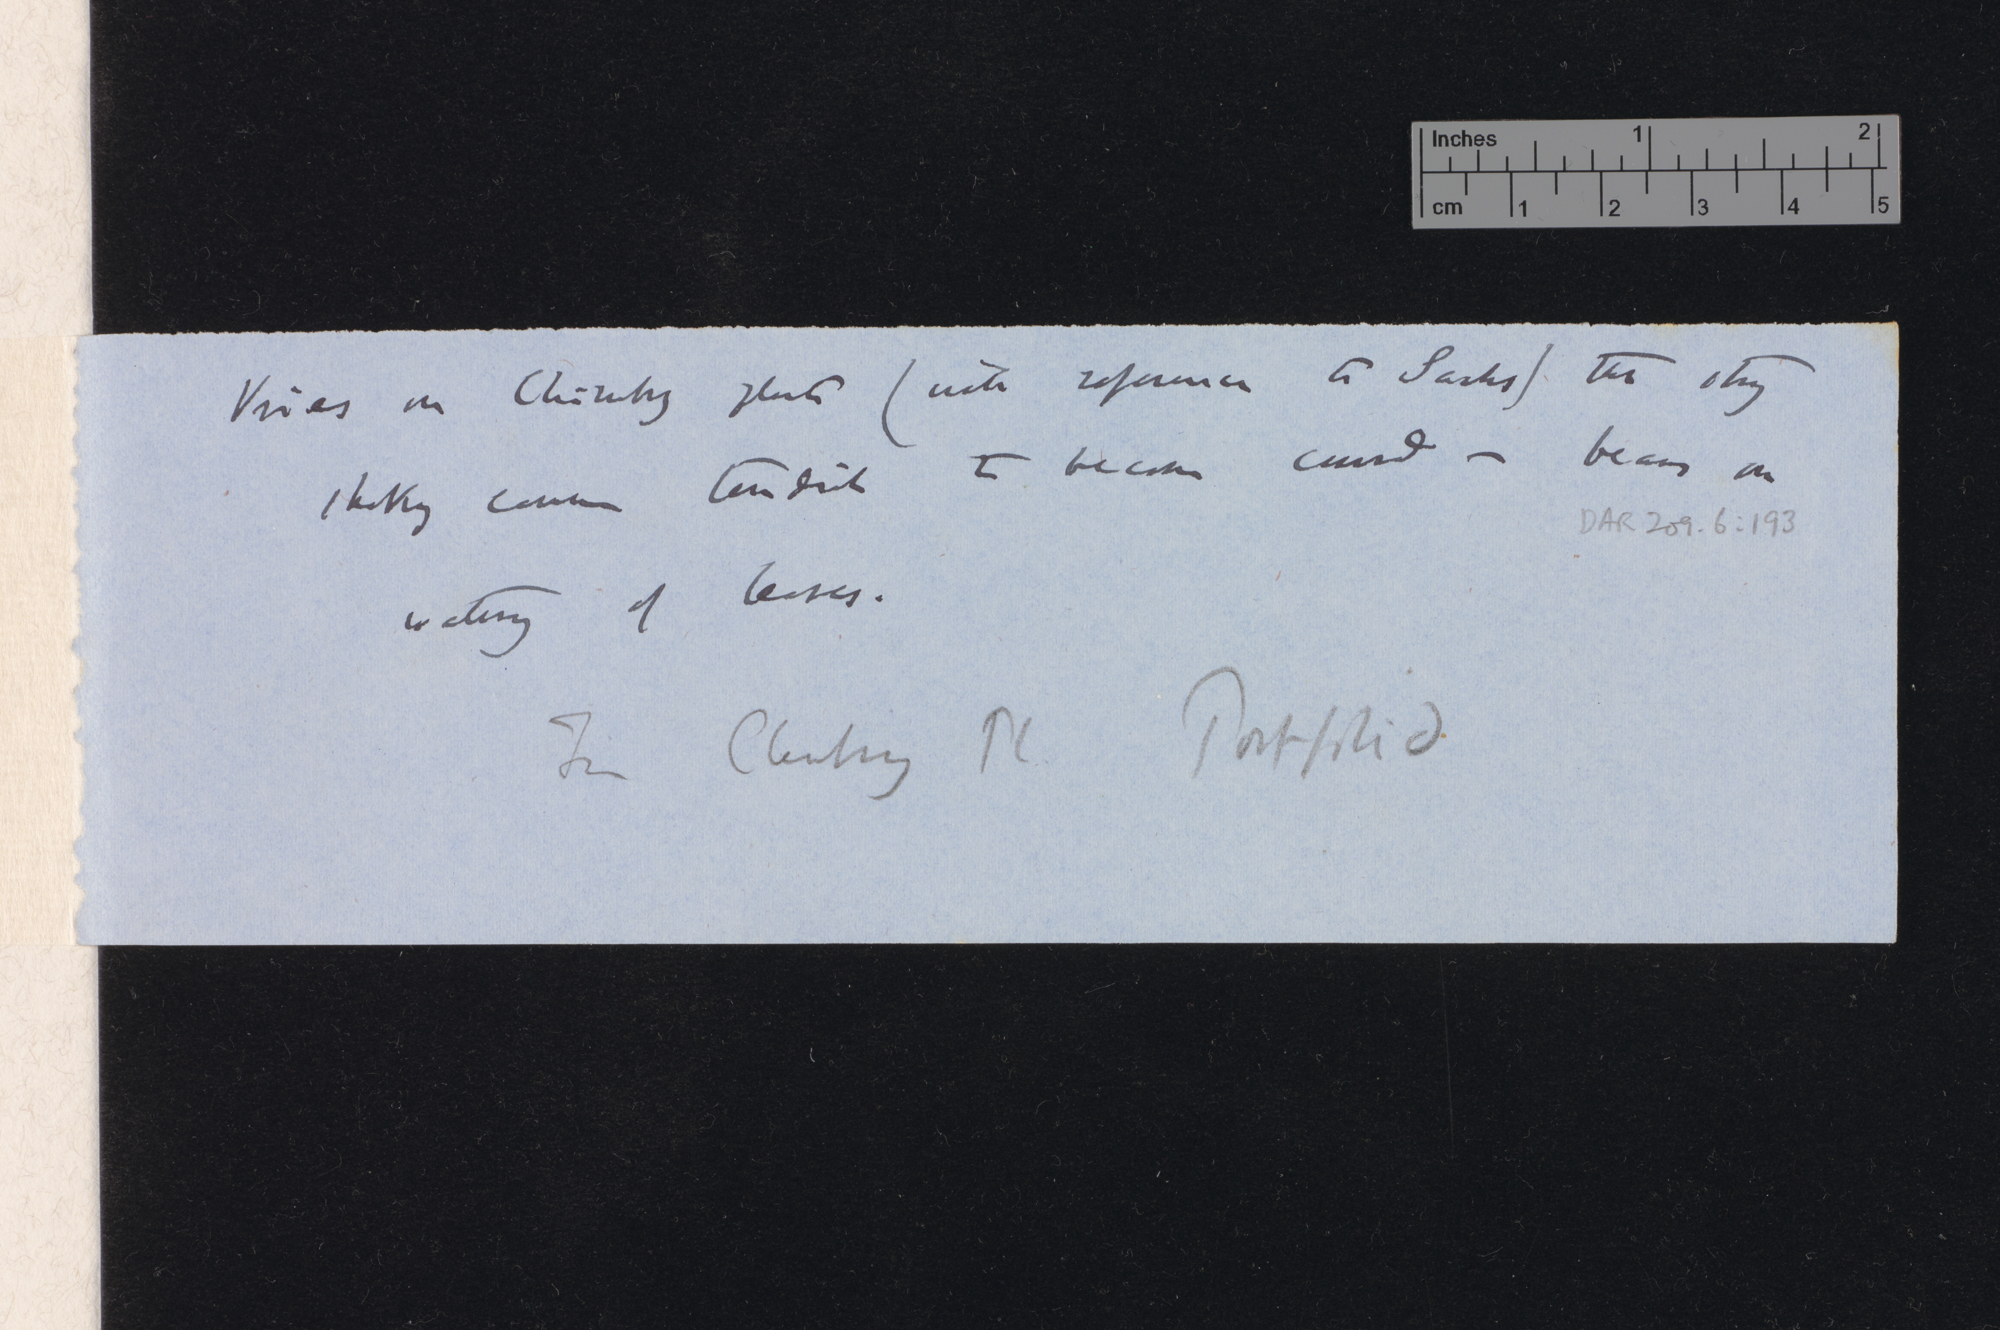 Inches 1 2
cm 1 2 3 4 5
Vries on Climbing plants (with reference to Sachs) that strong
shaking causes tendrils to become curved — bears on
DAR 209.6:193
watering of leaves.
In Climbing Pl Portfolio